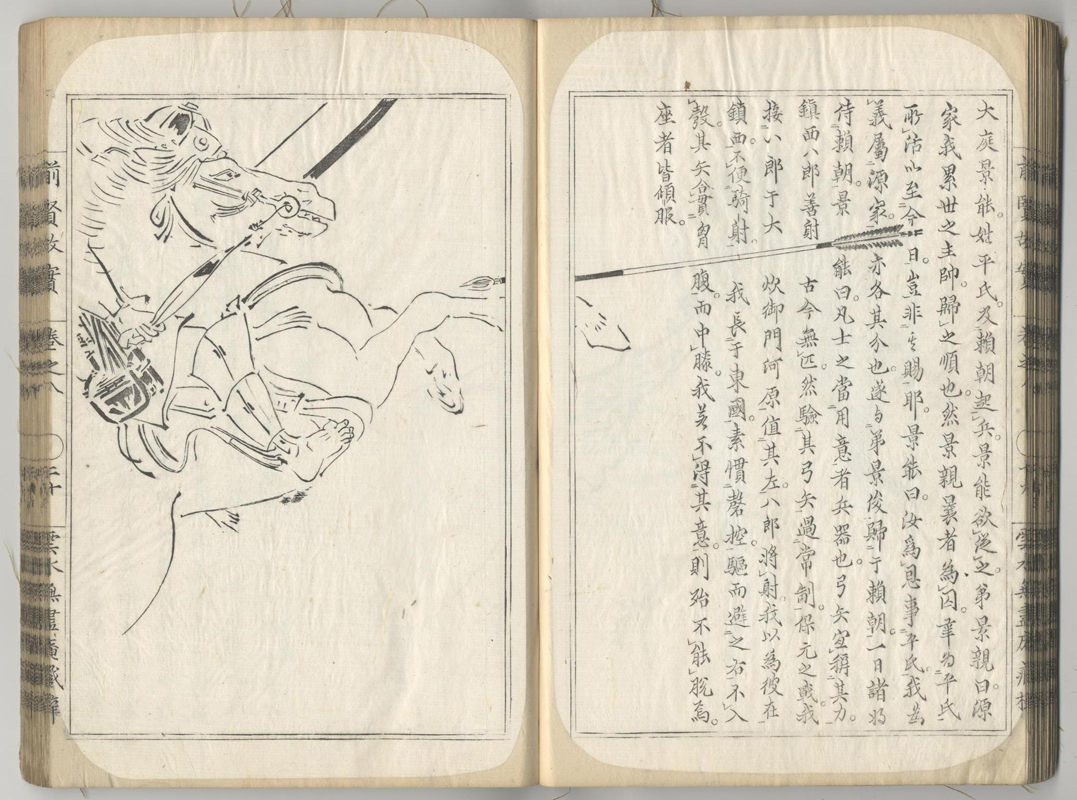 大庭景能。姓平氏。及賴朝起兵。景能欲從之。弟景親曰。源
家我累世之主師。歸之順也。然景親曩者為囚。幸為平氏
所活。以至今日。豈非其賜耶。景能曰。汝為恩事平氏。我並
義屬源家。亦各其分也。遂与弟景俊歸于賴朝。一日諸將
侍賴朝。景能曰。凡士之當用意者兵器也。弓矢宜稱其力。
鎮西八郎善射古今無匹。然驗其弓矢過常制。保元之戰。我
接八郎于大炊御門河原。值其左。八郎將射。我以為彼在
鎮西。不便騎射。我長于東國。素慣磬控。驅而避之右。不入
彀。其矢會貫胷腹而中膝。我若不得其意。則殆不能脫焉。
座者皆傾服。
前賢故實
卷之八
二十
雲水無盡庵藏梓